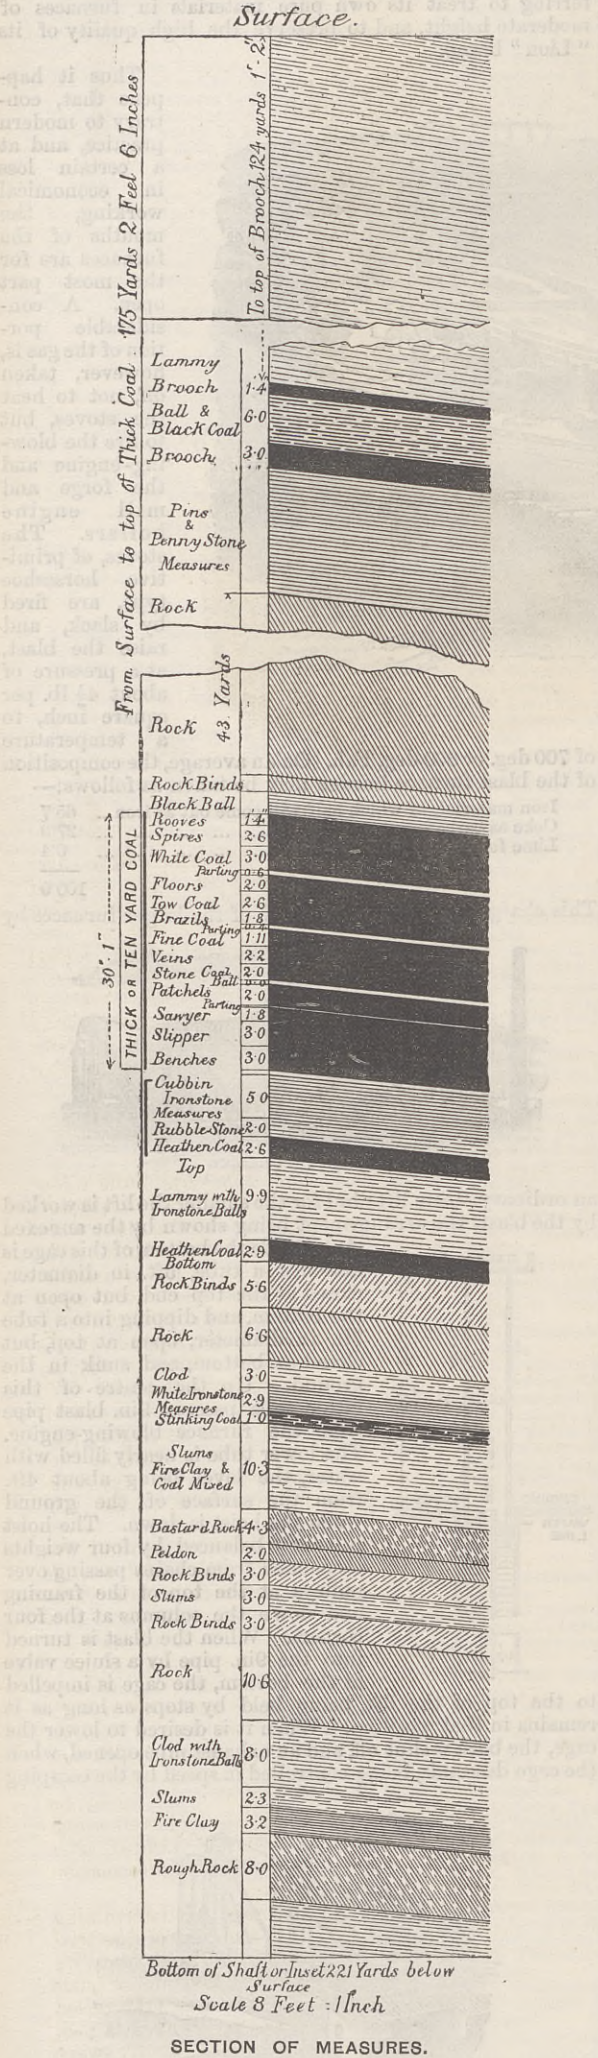 Surface.
From Surface to top of Thick Coal 175 Yards 2 Feet 6 Inches
To top of Brooch 124 yards 1'-2"
Lammy
Brooch 1·4
Ball & Black Coal 6·0
Brooch 3·0
Pins
&
Penny Stone
Measures
Rock
43 Yards
Rock
Rock Binds
Black Ball
THICK OR TEN YARD COAL
30'·1"
Rooves 1·4
Spires 2·6
White Coal 3·0
Parting 0·6
Floors 2·0
Tow Coal 2·6
Brazils 1·8
Parting
Fine Coal 1·11
Veins 2·2
Stone Coal 2·0
Ball
Patchels 2·0
Parting
Sawyer 1·8
Slipper 3·0
Benches 3·0
Cubbin
Ironstone 5 0
Measures
Rubble Stone 2·0
Heathen Coal 2·6
Top
Lammy with 9·9
Ironstone Balls
Heathen Coal 2·9
Bottom
Rock Binds 5·6
Rock 6·6
Clod 3·0
White Ironstone 2·9
Measures
Stinking Coal 1·0
Slums
Fire Clay & 10·3
Coal Mixed
Bastard Rock 4·3
Peldon 2·0
Rock Binds 3·0
Slums 3·0
Rock Binds 3·0
Rock 10·6
Clod with 8·0
Ironstone Balls
Slums 2·3
Fire Clay 3·2
Rough Rock 8·0
Bottom of Shaft or Inset 221 Yards below
Surface
Scale 8 Feet = 1 Inch
SECTION OF MEASURES.